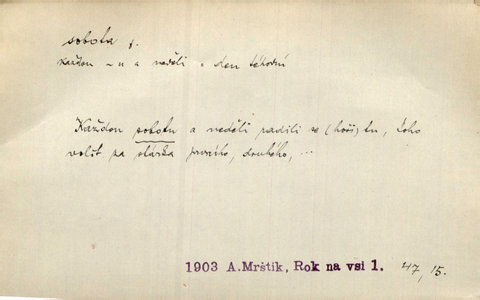 sobota f.
Každou ~u a neděli = den týhodní
Každou sobotu a neděli radili se (hoši) tu, koho
volit za stárka prvního, druhého, ...
1903 A.Mrštík, Rok na vsi 1. 47, 15.